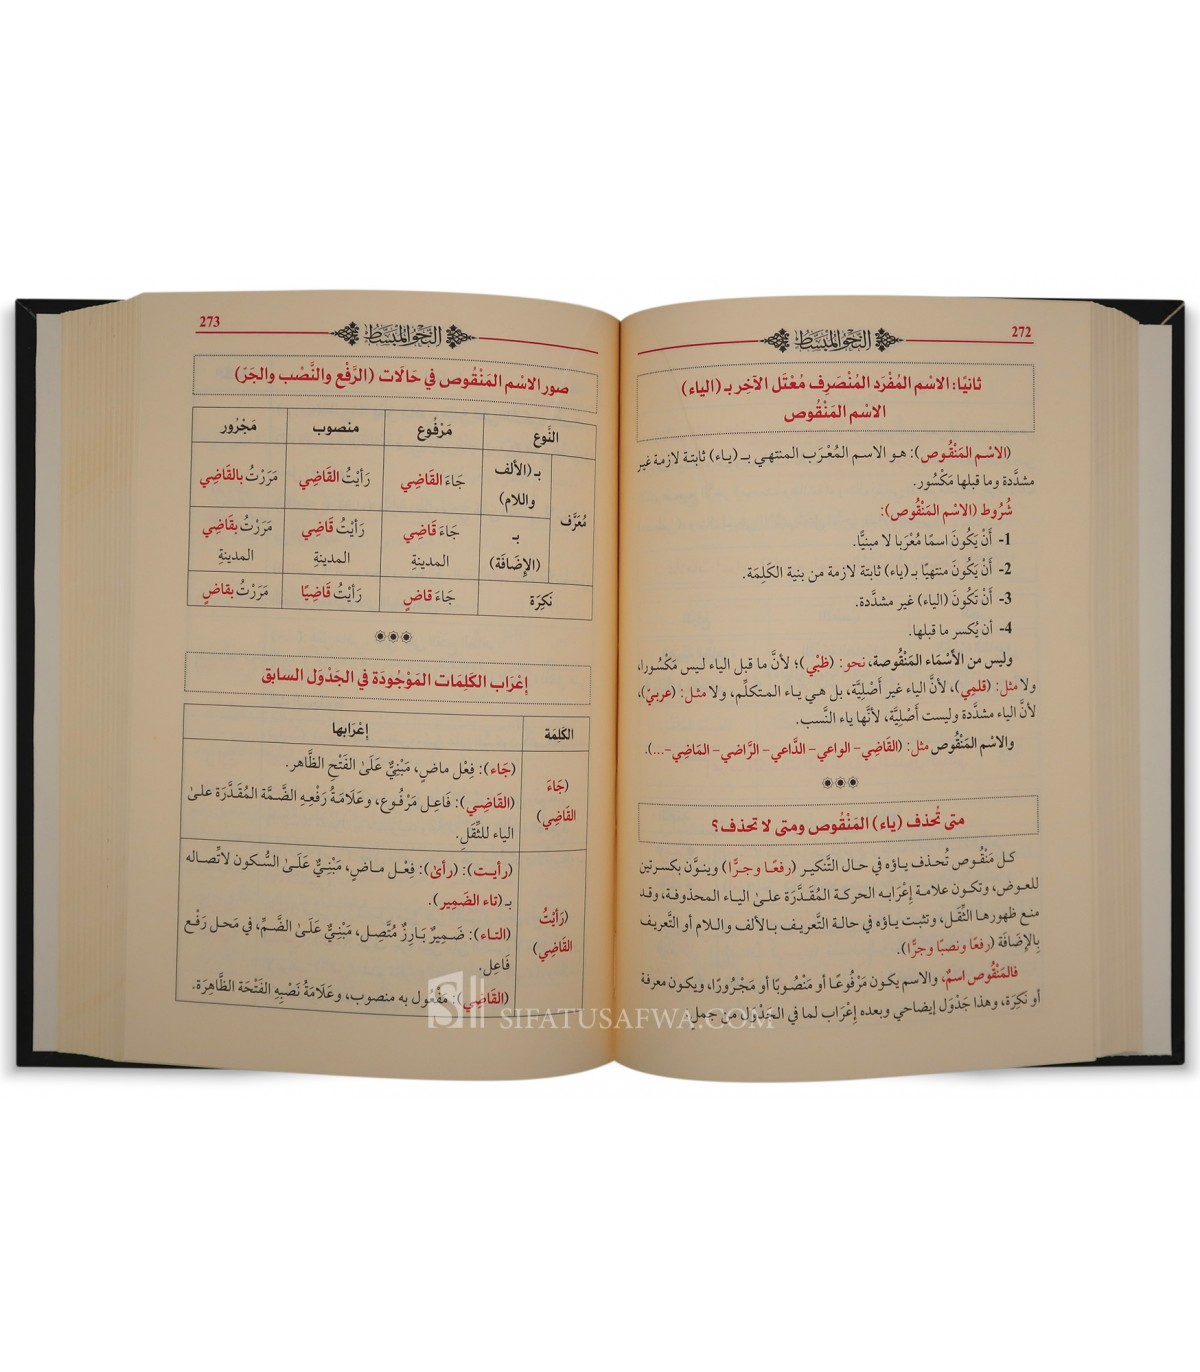 272
النحو المبسط
ثانيًا: الاسْم المُفْرَد المُنْصَرِف مُعْتَل الآخِر بـ (الياء)
الاسْم المَنْقُوص
(الاسْم المَنْقُوص): هـو الاسـم المُعْـرَب المنتهي بـ (يـاء) ثابتـة لازمـة غيـر
مشدَّدة وما قبلها مَكْسُور.
شُرُوط (الاسْم المَنْقُوص):
1- أَنْ يَكُونَ اسمًا مُعْرَبا لا مبنيًّا.
2- أَنْ يَكُونَ منتهيًا بـ (ياء) ثابتة لازمة من بنية الكَلِمَة.
3- أَنْ تَكُونَ (الياء) غير مشدَّدة.
4- أن يُكسر ما قبلها.
وليس من الأَسْمَاء المَنْقُوصة، نحو: (ظَبْي)؛ لأنَّ ما قبل الياء ليـس مَكْسُورا،
ولا مثل: (قلمِي)، لأنَّ الياء غير أَصْلِيَّة، بل هـي يـاء المـتكلِّم، ولا مثـل: (عربيّ)،
لأنَّ الياء مشدَّدة وليست أَصْلِيَّة، لأنَّها ياء النَّسب.
والاسْم المَنْقُوص مثل: (القَاضِي- الواعي- الدَّاعي- الرَّاضي- المَاضِي-...).
متى تُحذف (ياء) المَنْقُوص ومتى لا تحذف؟
كـل مَنْقُوص تُحـذف يـاؤه في حـال التَّنكيـر (رفعًـا وجـرًّا) وينـوَّن بكسـرتين
للعوض، وتكـون علامـة إعْرَابـه الحركـة المُقَـدَّرَة علـىٰ اليـاء المحذوفـة، وقـد
منع ظهورهـا الثِّقَـل، وتثبـت يـاؤه في حالـة التَّعريـف بـالألف والـلام أو التَّعريف
بِالإضَافَة (رفعًا ونصبًا وجرًّا).
فالمَنْقُوص اسمٌ، والاسم يكون مَرْفُوعًـا أو مَنْصُوبًا أو مَجْرُورًا، ويكون معرفة
أو نَكِرَة، وهذا جَدْوَل إيضاحي وبعده إِعْرَاب لما في الجَدْوَل من جملٍ.
273
النحو المبسط
صور الاسْم المَنْقُوص في حَالَات (الرَّفْع والنَّصْب والجَرّ)
النَّوع مَرْفُوع منصوب مَجْرُور
مُعَرَّف بـ (الألف واللام) جَاءَ القَاضِي رَأيْتُ القَاضِي مَرَرْتُ بالقَاضِي
بـ (الإضَافَة) جَاءَ قَاضِي المدينةِ رَأيْتُ قَاضِيَ المدينةِ مَرَرْتُ بقَاضِي المدينةِ
نَكِرَة جَاءَ قاضٍ رَأيْتُ قَاضِيًا مَرَرْتُ بقاضٍ
إعْرَاب الكَلِمَات المَوْجُودَة في الجَدْوَل السابق
الكَلِمَة إعْرَابها
(جَاءَ القَاضِي) (جَاء): فِعْل ماضٍ، مَبْنِيٌّ عَلَىٰ الفَتْحِ الظَّاهر.
(القَاضِـي): فَاعِـل مَرْفُـوع، وعَلَامَـةُ رَفْعـهِ الضَّمَّـة المُقَـدَّرَة علـىٰ
الياء للثِّقَلِ.
(رَأيْتُ القَاضِي) (رأيـت): (رأىٰ): فِعْل مـاضٍ، مَبْنِـيٌّ عَلَـىٰ السُّـكون لاتِّصاله
بـ (تاء الضَمِير).
(التـاء): ضَـمِيرٌ بَـارِزٌ مُتَّصِـل، مَبْنِيٌّ عَلَـىٰ الضَّـمِّ، في مَحـل رَفْع
فَاعِل.
(القَاضِي): مَفْعُول به منصوب، وعَلَامَةُ نَصْبِهِ الفَتْحَة الظَّاهِرَة.
SIFATUSAFWA.COM